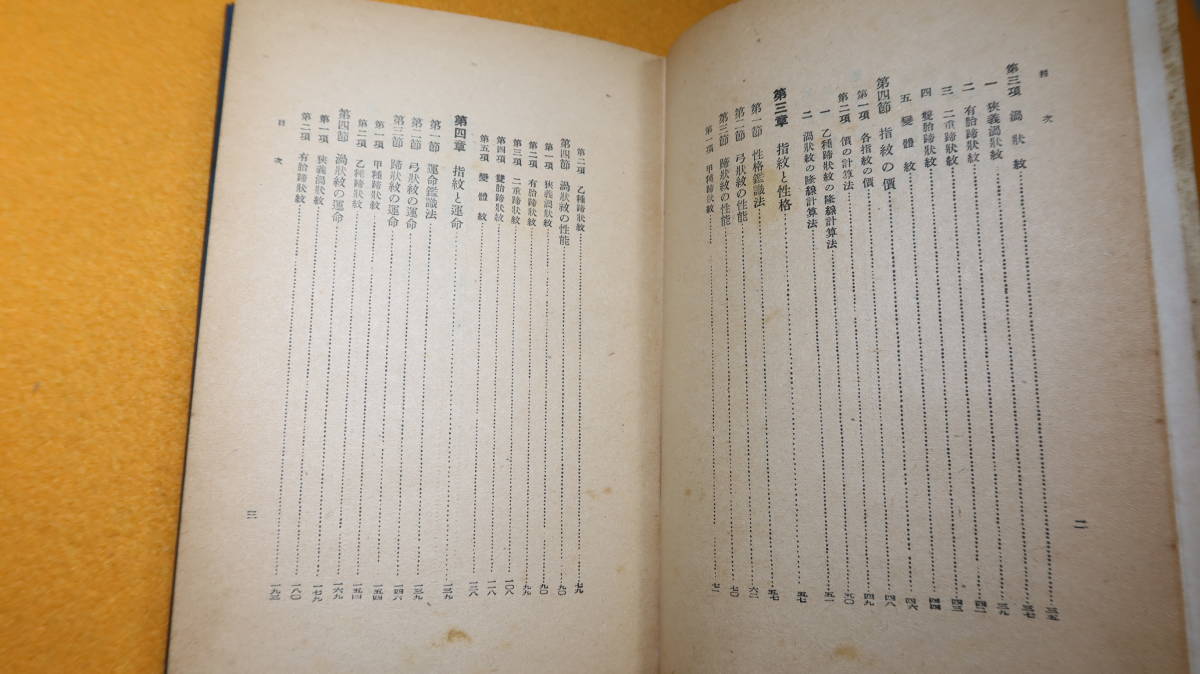 目次
第三項 渦狀紋……三五
一 狹義渦狀紋……三七
二 有胎蹄狀紋……三九
三 二重蹄狀紋……四二
四 雙胎蹄狀紋……四三
五 變體紋……四四
第四節 指紋の價……四六
第一項 各指紋の價……四八
第二項 價の計算法……四九
一 乙種蹄狀紋の隆線計算法……五〇
二 渦狀紋の隆線計算法……五一
第三章 指紋と性格……五七
第一節 性格鑑識法……五七
第二節 弓狀紋の性能……六二
第三節 蹄狀紋の性能……七〇
第一項 甲種蹄狀紋……七一
二
第二項 乙種蹄狀紋……七九
第四節 渦狀紋の性能……九〇
第一項 狹義渦狀紋……九〇
第二項 有胎蹄狀紋……九九
第三項 二重蹄狀紋……一〇八
第四項 雙胎蹄狀紋……一一八
第五項 變體紋……一二八
第四章 指紋と運命……一三九
第一節 運命鑑識法……一三九
第二節 弓狀紋の運命……一四六
第三節 蹄狀紋の運命……一五四
第一項 甲種蹄狀紋……一五四
第二項 乙種蹄狀紋……一六九
第四節 渦狀紋の運命……一七九
第一項 狹義渦狀紋……一八〇
第二項 有胎蹄狀紋……一九三
目次
三